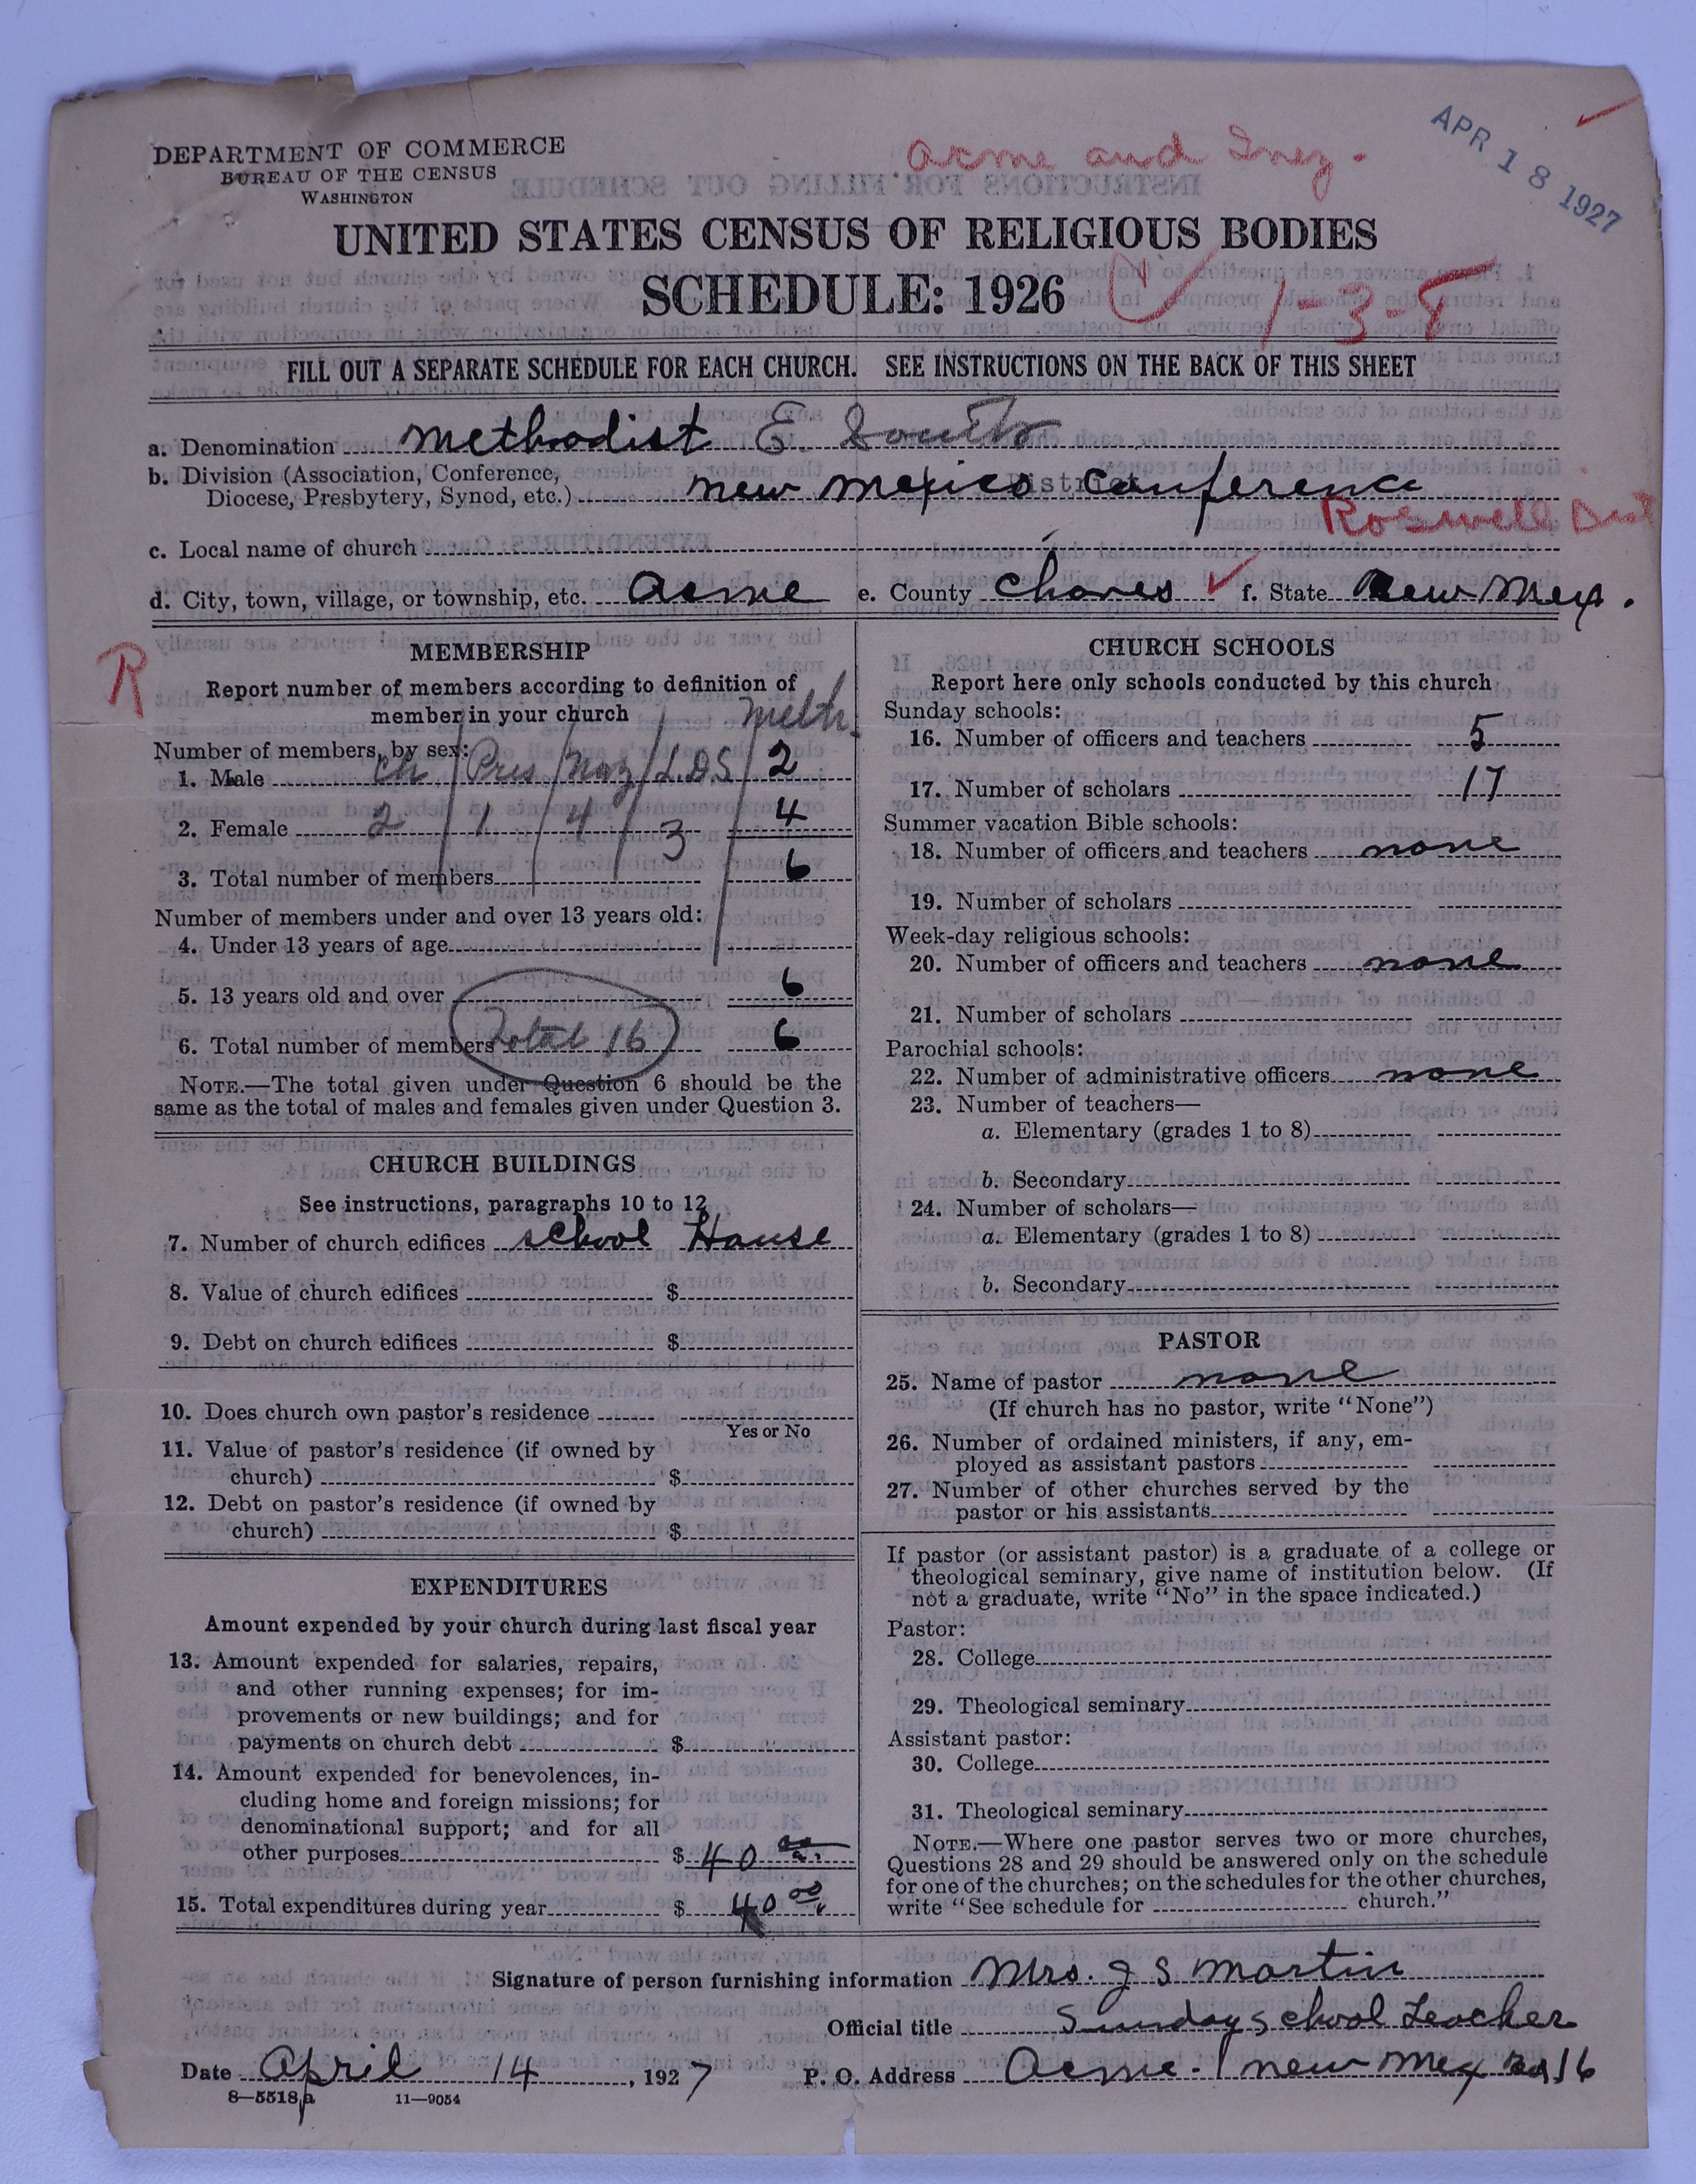 DEPARTMENT OF COMMERCE
BUREAU OF THE CENSUS
WASHINGTON
Acme and Inez.
APR 18 1927
UNITED STATES CENSUS OF RELIGIOUS BODIES
SCHEDULE: 1926
1-3-8
FILL OUT A SEPARATE SCHEDULE FOR EACH CHURCH. SEE INSTRUCTIONS ON THE BACK OF THIS SHEET
a. Denomination Methodist E. South
b. Division (Association, Conference,
Diocese, Presbytery, Synod, etc.) New Mexico Conference
Roswell Dist
c. Local name of church
d. City, town, village, or township, etc. Acme e. County Chaves f. State New Mex.
R
MEMBERSHIP
Report number of members according to definition of
member in your church Meth.
Number of members, by sex:
1. Male Ch / Pres / Naz / L.D.S / 2
2. Female 2 / 1 / 4 / 3 4
3. Total number of members 6
Number of members under and over 13 years old:
4. Under 13 years of age
5. 13 years old and over 6
6. Total number of members Total 16 6
NOTE.—The total given under Question 6 should be the
same as the total of males and females given under Question 3.
CHURCH BUILDINGS
See instructions, paragraphs 10 to 12
7. Number of church edifices School House
8. Value of church edifices $
9. Debt on church edifices $
10. Does church own pastor's residence
Yes or No
11. Value of pastor's residence (if owned by
church) $
12. Debt on pastor's residence (if owned by
church) $
EXPENDITURES
Amount expended by your church during last fiscal year
13. Amount expended for salaries, repairs,
and other running expenses; for im-
provements or new buildings; and for
payments on church debt $
14. Amount expended for benevolences, in-
cluding home and foreign missions; for
denominational support; and for all
other purposes $ 40 00
15. Total expenditures during year $ 40 00
CHURCH SCHOOLS
Report here only schools conducted by this church
Sunday schools:
16. Number of officers and teachers 5
17. Number of scholars 17
Summer vacation Bible schools:
18. Number of officers and teachers none
19. Number of scholars
Week-day religious schools:
20. Number of officers and teachers none
21. Number of scholars
Parochial schools:
22. Number of administrative officers none
23. Number of teachers—
a. Elementary (grades 1 to 8)
b. Secondary
24. Number of scholars—
a. Elementary (grades 1 to 8)
b. Secondary
PASTOR
25. Name of pastor none
(If church has no pastor, write "None")
26. Number of ordained ministers, if any, em-
ployed as assistant pastors
27. Number of other churches served by the
pastor or his assistants
If pastor (or assistant pastor) is a graduate of a college or
theological seminary, give name of institution below. (If
not a graduate, write "No" in the space indicated.)
Pastor:
28. College
29. Theological seminary
Assistant pastor:
30. College
31. Theological seminary
NOTE.—Where one pastor serves two or more churches,
Questions 28 and 29 should be answered only on the schedule
for one of the churches; on the schedules for the other churches,
write "See schedule for church."
Signature of person furnishing information Mrs. J S Martin
Official title Sunday School Teacher
Date April 14, 1927 P. O. Address Acme. New Mex 16
8—5518 a 11—9054